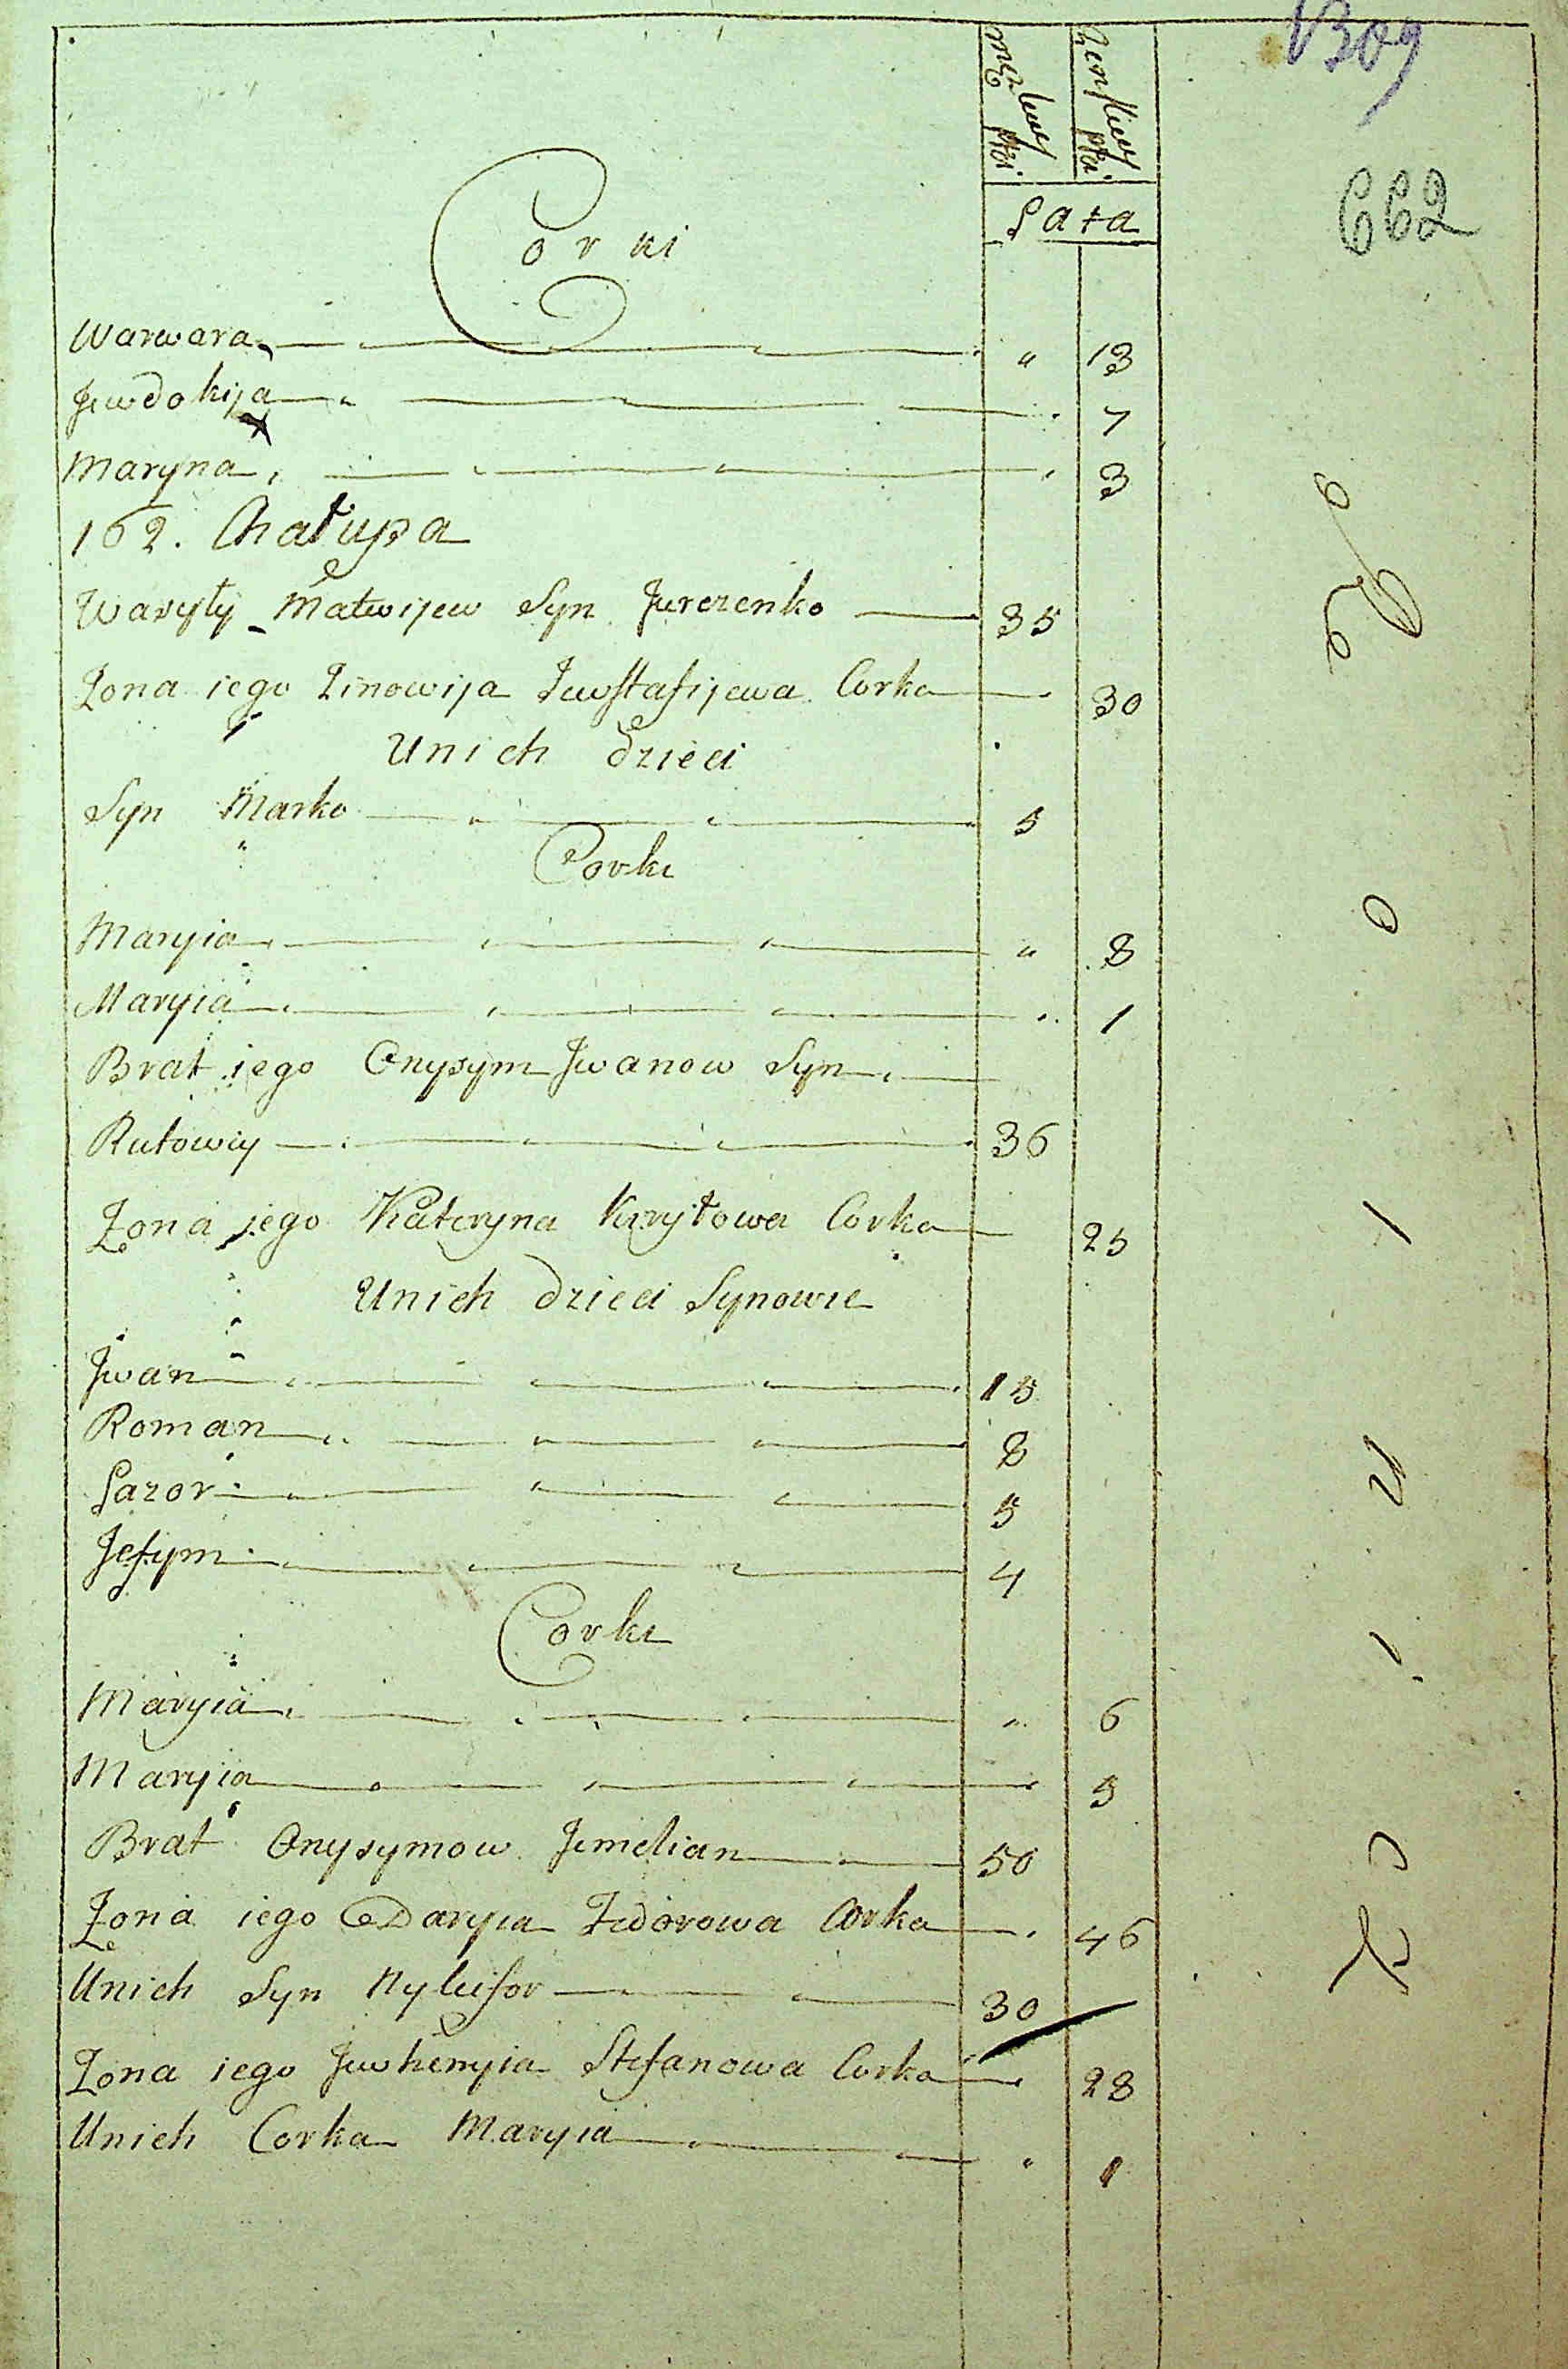 B09
662
męzkiey płci
żenskiey płci
Lata
Corki
Warwara " 13
Jewdokija 7
Maryna 3
162. Chałupa
Wasyly Matwijew Syn Jurczenko 35
Żona iego Zinowija Jewstafijewa Corka 30
Unich dzieci
Syn Marko 5
Corki
Maryia " 8
Maryia " 1
Brat iego Onysym Jwanow Syn
Rutowiy 36
Żona iego Kateryna Kyryłowa Corka 25
Unich dzieci Synowie
Jwan 15
Roman 8
Lazor 5
Jefym 4
Corki
Maryia " 6
Maryia 5
Brat Onysymow Jemelian 50
Żona iego Daryia Fedorowa Corka 46
Unich Syn Nykifor 30
Żona iego Jewhenyia Stefanowa Corka 28
Unich Corka Maryia " 1